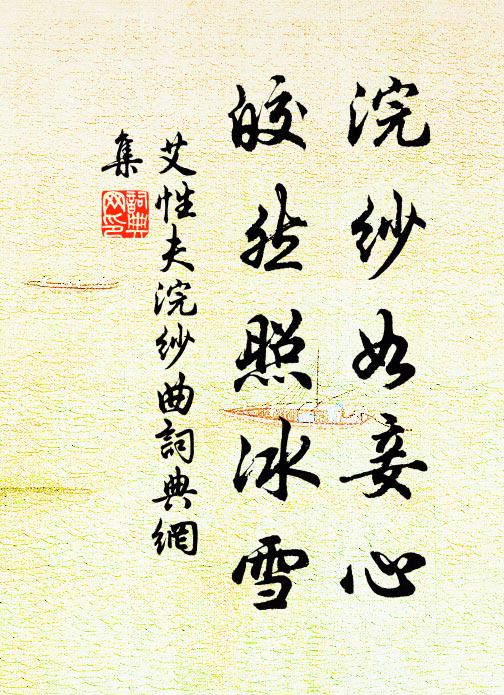 浣紗如妾心
皎然照冰雪
艾性夫浣紗曲詞典網
集
詞典
网印